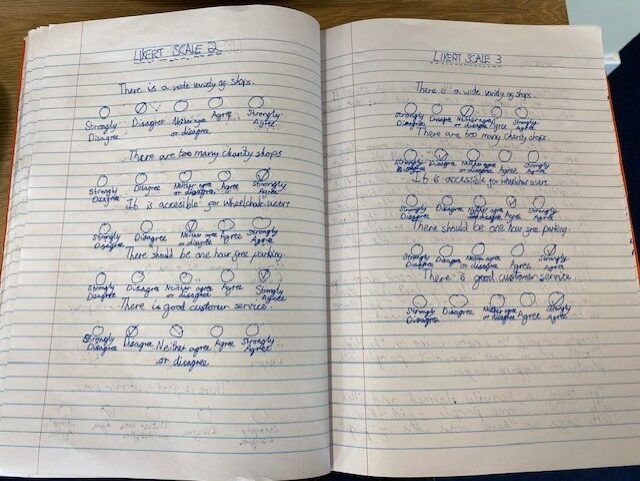 LIKERT SCALE 2
There is a wide variety of shops.
Strongly Disagree Disagree Neither agree or disagree Agree Strongly Agree
There are too many charity shops
Strongly Disagree Disagree Neither agree or disagree Agree Strongly Agree
It is accesible for wheelchair users
Strongly Disagree Disagree Neither agree or disagree Agree Strongly Agree
There should be one hour free parking.
Strongly Disagree Disagree Neither agree or disagree Agree Strongly Agree
There is good customer service.
Strongly Disagree Disagree Neither agree or disagree Agree Strongly Agree
LIKERT SCALE 3
There is a wide variety of shops.
Strongly Disagree Disagree Neither agree or disagree Agree Strongly Agree
There are too many charity shops.
Strongly Disagree Disagree Neither agree or disagree Agree Strongly Agree
It is accessible for wheelchair users.
Strongly Disagree Disagree Neither agree or disagree Agree Strongly Agree
There should be one hour free parking.
Strongly Disagree Disagree Neither agree or disagree Agree Strongly Agree
There is good customer service.
Strongly Disagree Disagree Neither agree or disagree Agree Strongly Agree